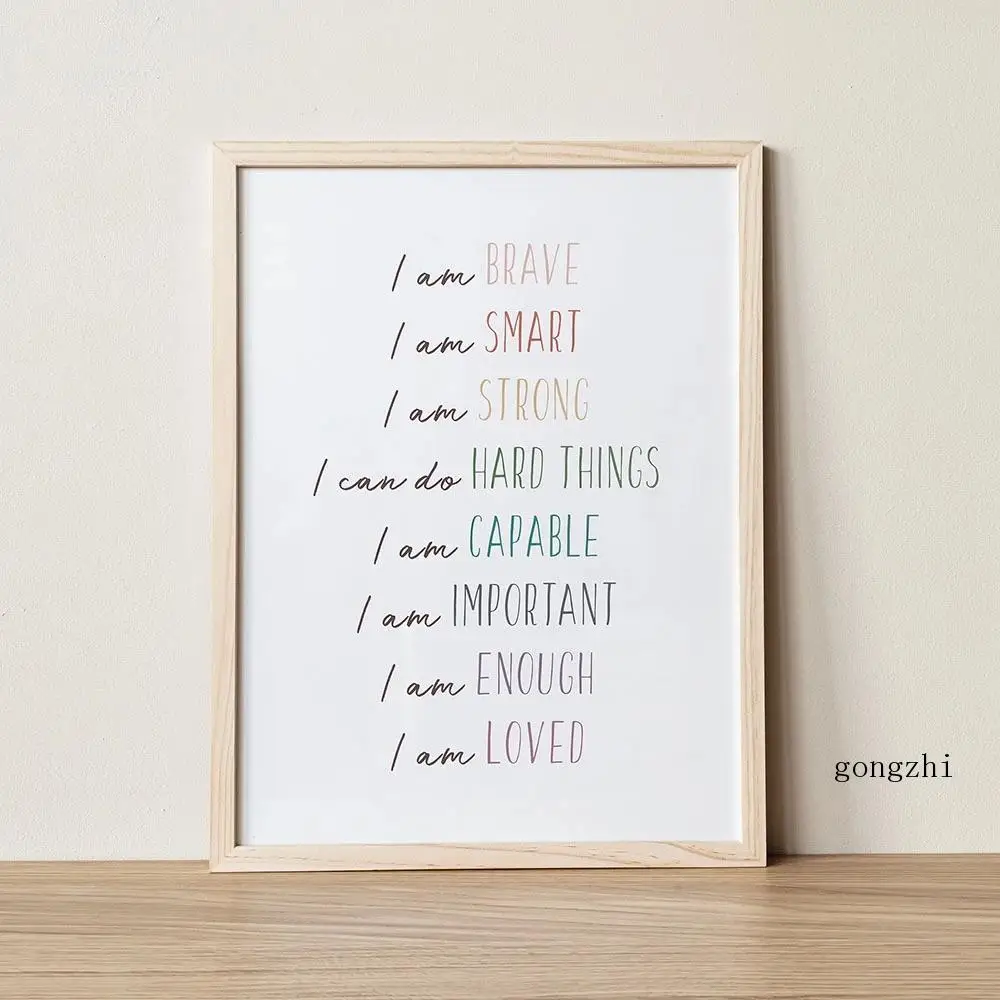 I am BRAVE
I am SMART
I am STRONG
I can do HARD THINGS
I am CAPABLE
I am IMPORTANT
I am ENOUGH
I am LOVED
gongzhi